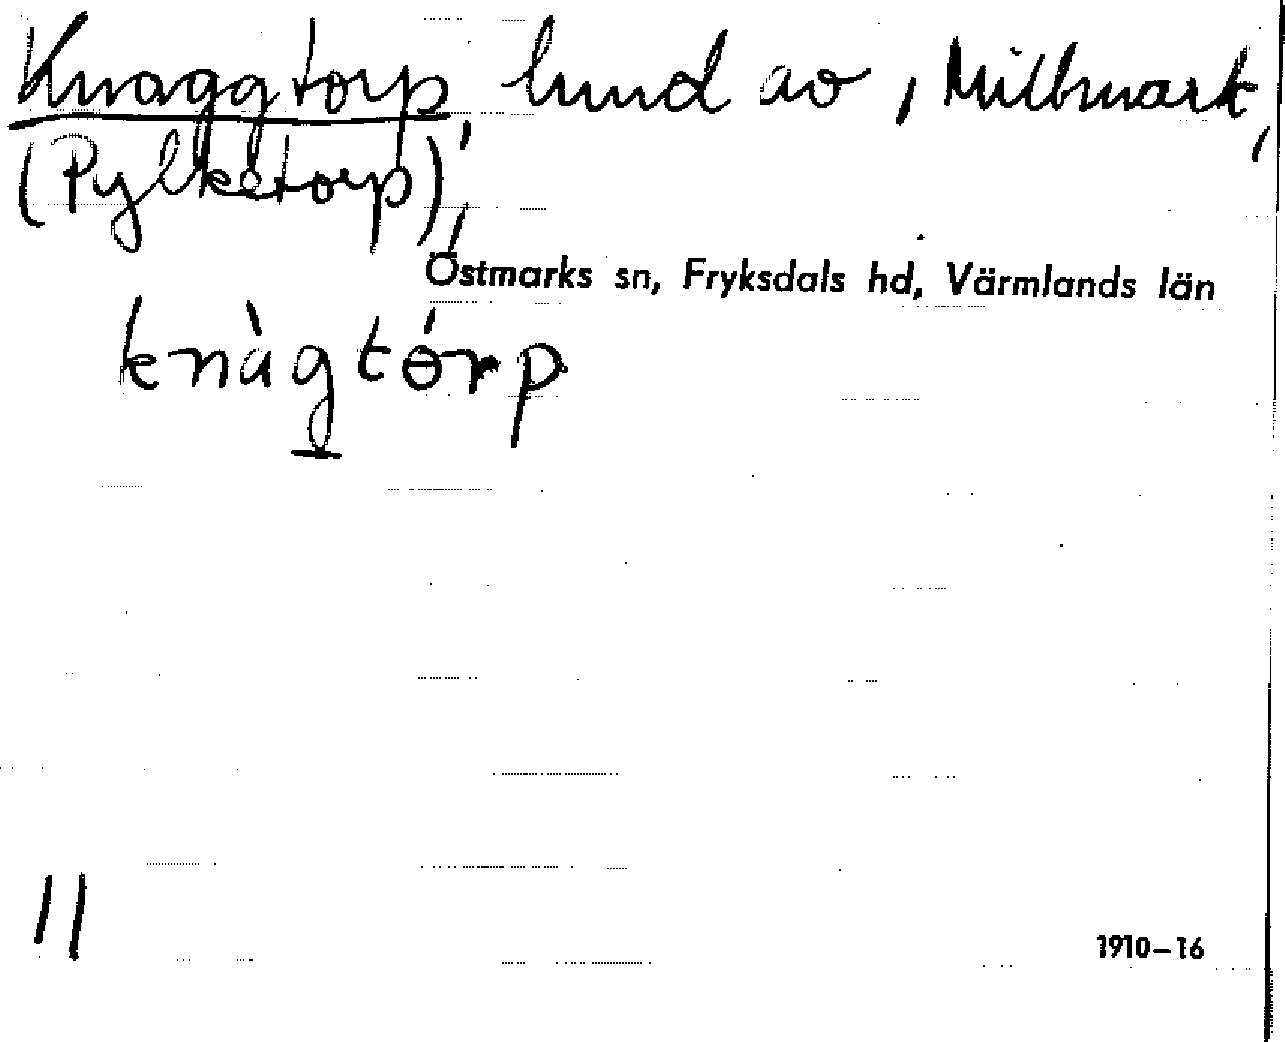 Knaggtorp, lund av, Millmark,
(Pylketorp),
Östmarks sn, Fryksdals hd, Värmlands län
knàgtórp
11
1910–16